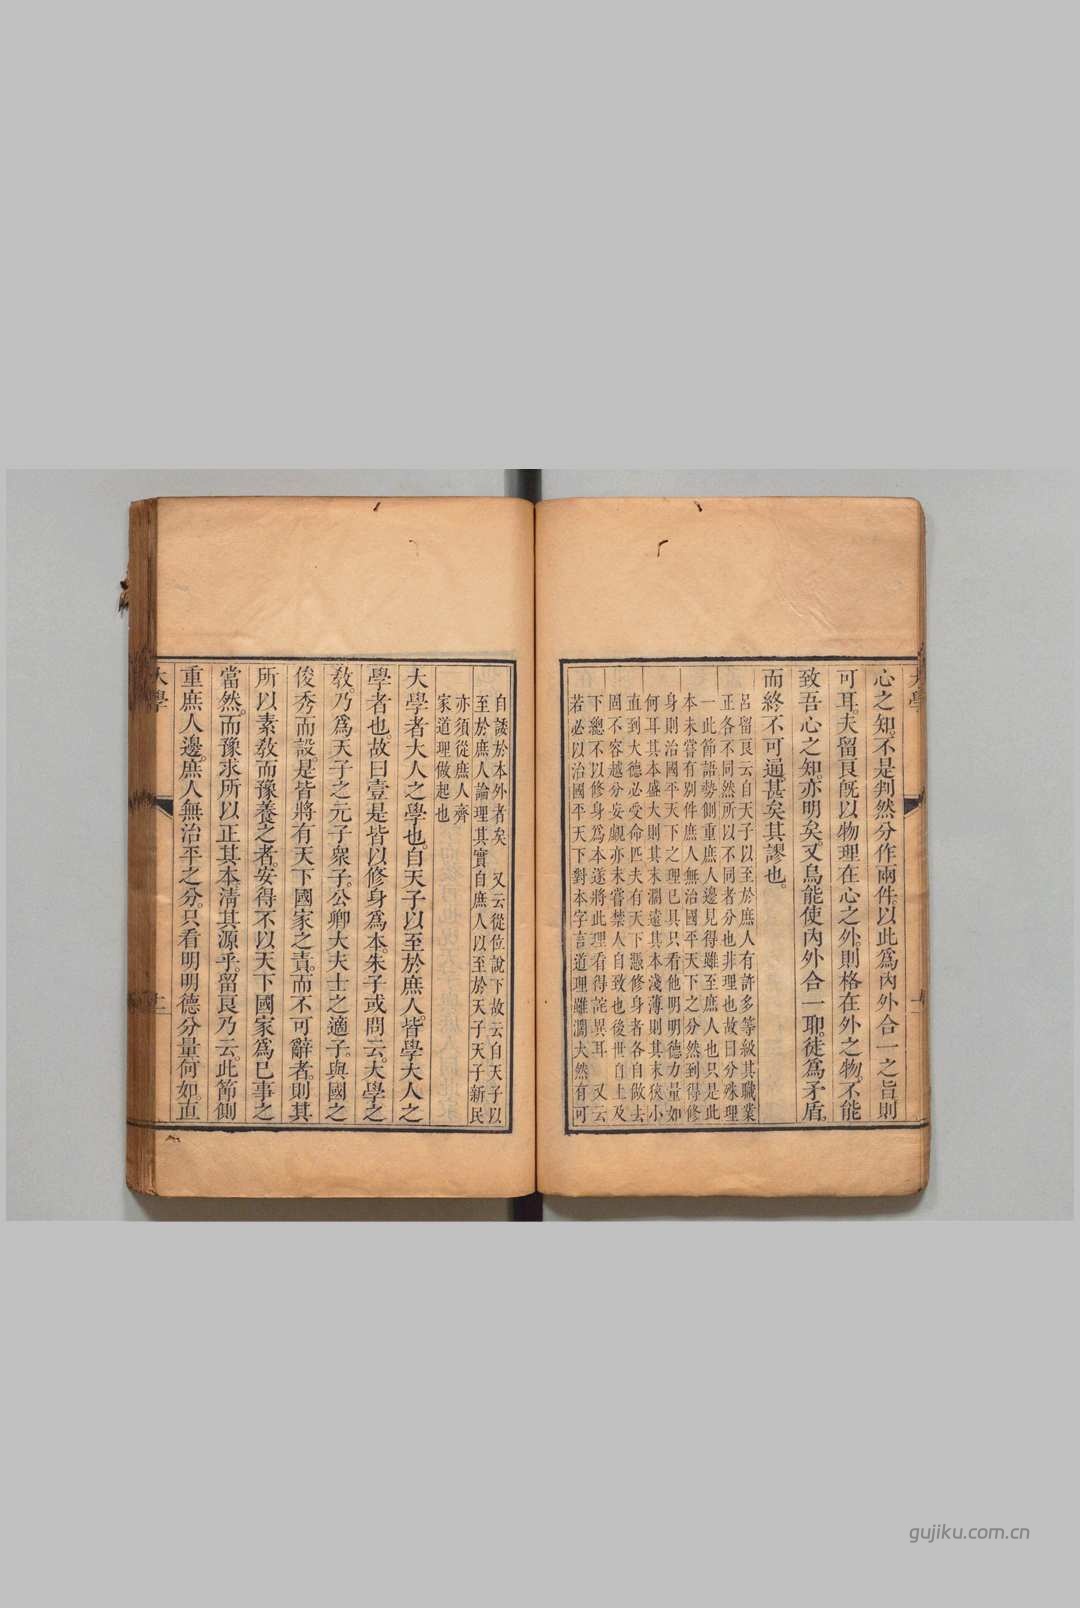 心之知。不是判然分作兩件。以此爲內外合一之旨則
可耳。夫留良旣以物理在心之外。則格在外之物。不能
致吾心之知。亦明矣。又烏能使內外合一耶。徒爲矛盾。
而終不可通。甚矣其謬也。
呂留良云自天子以至於庶人有許多等級其職業
正各不同然所以不同者分也非理也故曰分殊理
一此節語勢側重庶人邊見得雖至庶人也只是此
本未嘗有別件庶人無治國平天下之分然到得修
身則治國平天下之理已具只看他明明德力量如
何耳其本盛大則其末濶遠其本淺薄則其末狹小
直到大德必受命匹夫有天下憑修身者各自做去
固不容越分妄覷亦未嘗禁人自致也後世自上及
下總不以修身爲本遂將此理看得詫異耳 又云
若必以治國平天下對本字言道理雖濶大然有可
自諉於本外者矣 又云從位說下故云自天子以
至於庶人論理其實自庶人以至於天子天子新民
亦須從庶人齊
家道理做起也
大學者大人之學也。自天子以至於庶人。皆學大人之
學者也。故曰壹是皆以修身爲本。朱子或問云。大學之
敎。乃爲天子之元子衆子。公卿大夫士之適子。與國之
俊秀而設。是皆將有天下國家之責。而不可辭者。則其
所以素敎而豫養之者。安得不以天下國家爲已事之
當然。而豫求所以正其本淸其源乎。留良乃云。此節側
重庶人邊。庶人無治平之分。只看明明德分量何如。直
大學
gujiku.com.cn